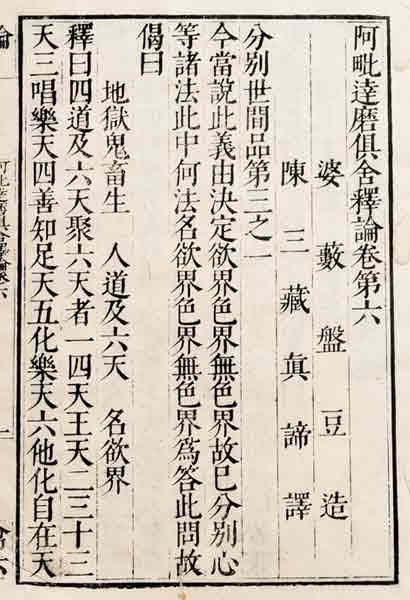 阿毗達磨俱舍釋論卷第六
婆藪盤豆造
陳三藏真諦譯
分別世間品第三之一
今當說此義由決定欲界色界無色界故已分別心
等諸法此中何法名欲界色界無色界為答此問故
偈曰
地獄鬼畜生 人道及六天 名欲界
釋曰四道及六天聚六天者一四天王天二三十三
天三唱樂天四善知足天五化樂天六他化自在天